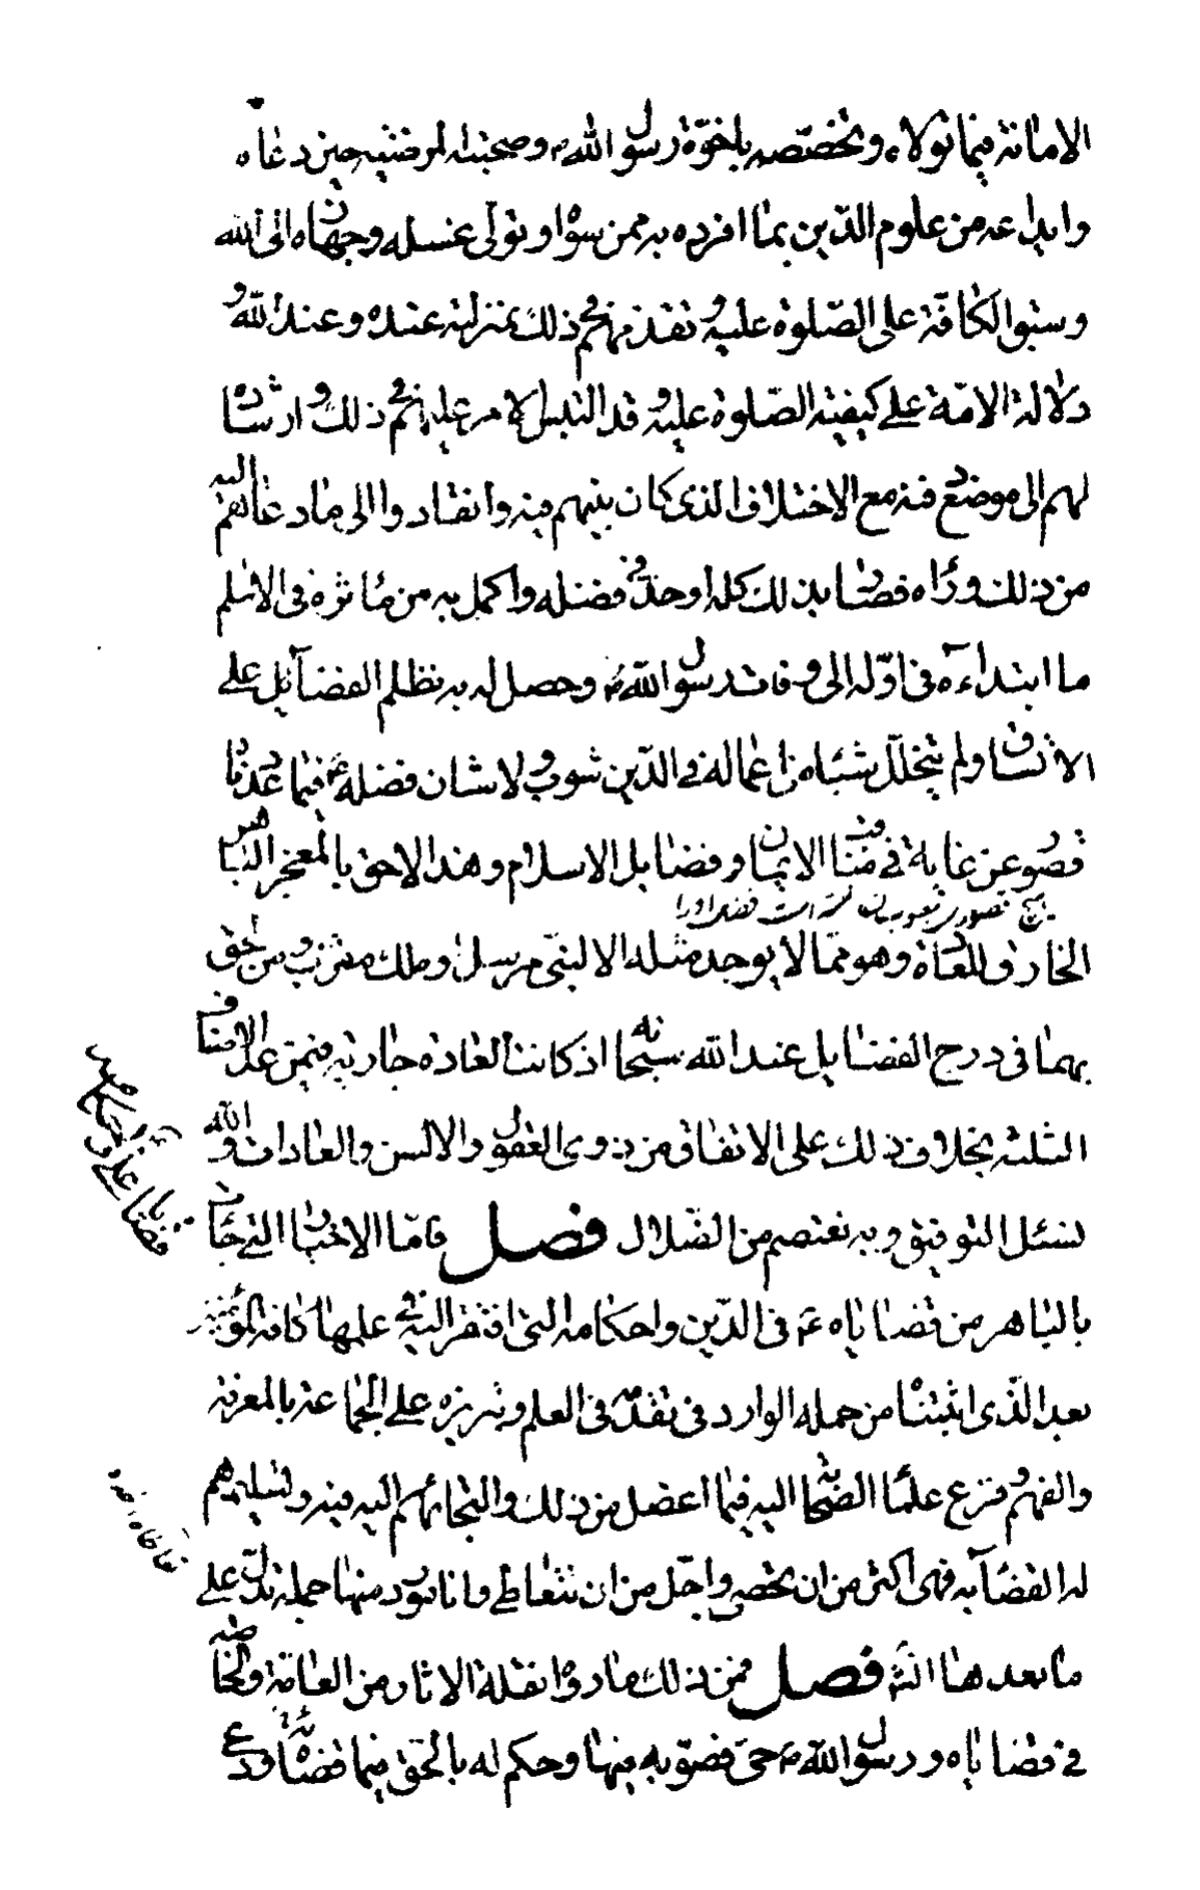 الامانة فيما تولاه وتخصّصه باخوّة رسول الله ص وصحبته له مرضيه حين دعاه
وايداعه من علوم الدّين بما افرده به ممن سواه وتولى غسله وجهازه الى الله
وسبق الكافّة على الصّلوة عليه وتقدّمهم في ذلك بمنزلته عنده وعند الله و
دلالة الامّة على كيفيّة الصّلوة عليه وقد التبس الامر عليهم في ذلك وارشاده
لهم الى موضع دفنه مع الاختلاف الذى كان بينهم فيه وانقادوا الى ما دعاهم اليه
من ذلك ورآه فصار بذلك كله اوحد في فضله واكمل به من مآثره في الاسلم
ما ابتداءه في اوّله الى وفات رسول الله ص وحصل له به نظام الفضآيل على
الاتساق ولم يتخلّل شيئا من اعماله في الدّين شوب ولا شان فضله ع فيما عددناه
قصور عن غاية في مناقب الايمان وفضايل الاسلام وهذا لاحق بالمعجز الباهر
الخارق للعادة وهو ممّا لا يوجد مثله الا لنبىّ مرسل او ملك مقرّب ومن لحق
بهما في درج الفضايل عند الله سبحانه اذ كانت العادة جارية فيمن عدا الاصناف
الثلثة بخلاف ذلك على الاتفاق من ذوى العقول والالسن والعادات والله
نسئل التوفيق وبه نعتصم من الضّلال فصل فامّا الاخبار التى جائت
بالباهر من قضاياه ع في الدّين واحكامه التى افتقر اليه في علمها كافة المؤمنين
بعد الّذى اثبتناه من جملة الوارد في تقدّمه في العلم وتبريزه على الجماعة بالمعرفة
والفهم وفزع علماء الصّحابة اليه فيما اعضل من ذلك والتجائهم اليه فيه وتسليمهم
له القضآء به فهى اكثر من ان تحصى واجلّ من ان تتعاطى وانا مورد منها جملة تدلّ على
ما بعدها انشاء فصل فمن ذلك ما رواه نقلة الاثار من العامّة والخاصّة
في قضاياه ورسول الله ص حىّ فصوّبه فيها وحكم له بالحق فيما قضاه ودعى